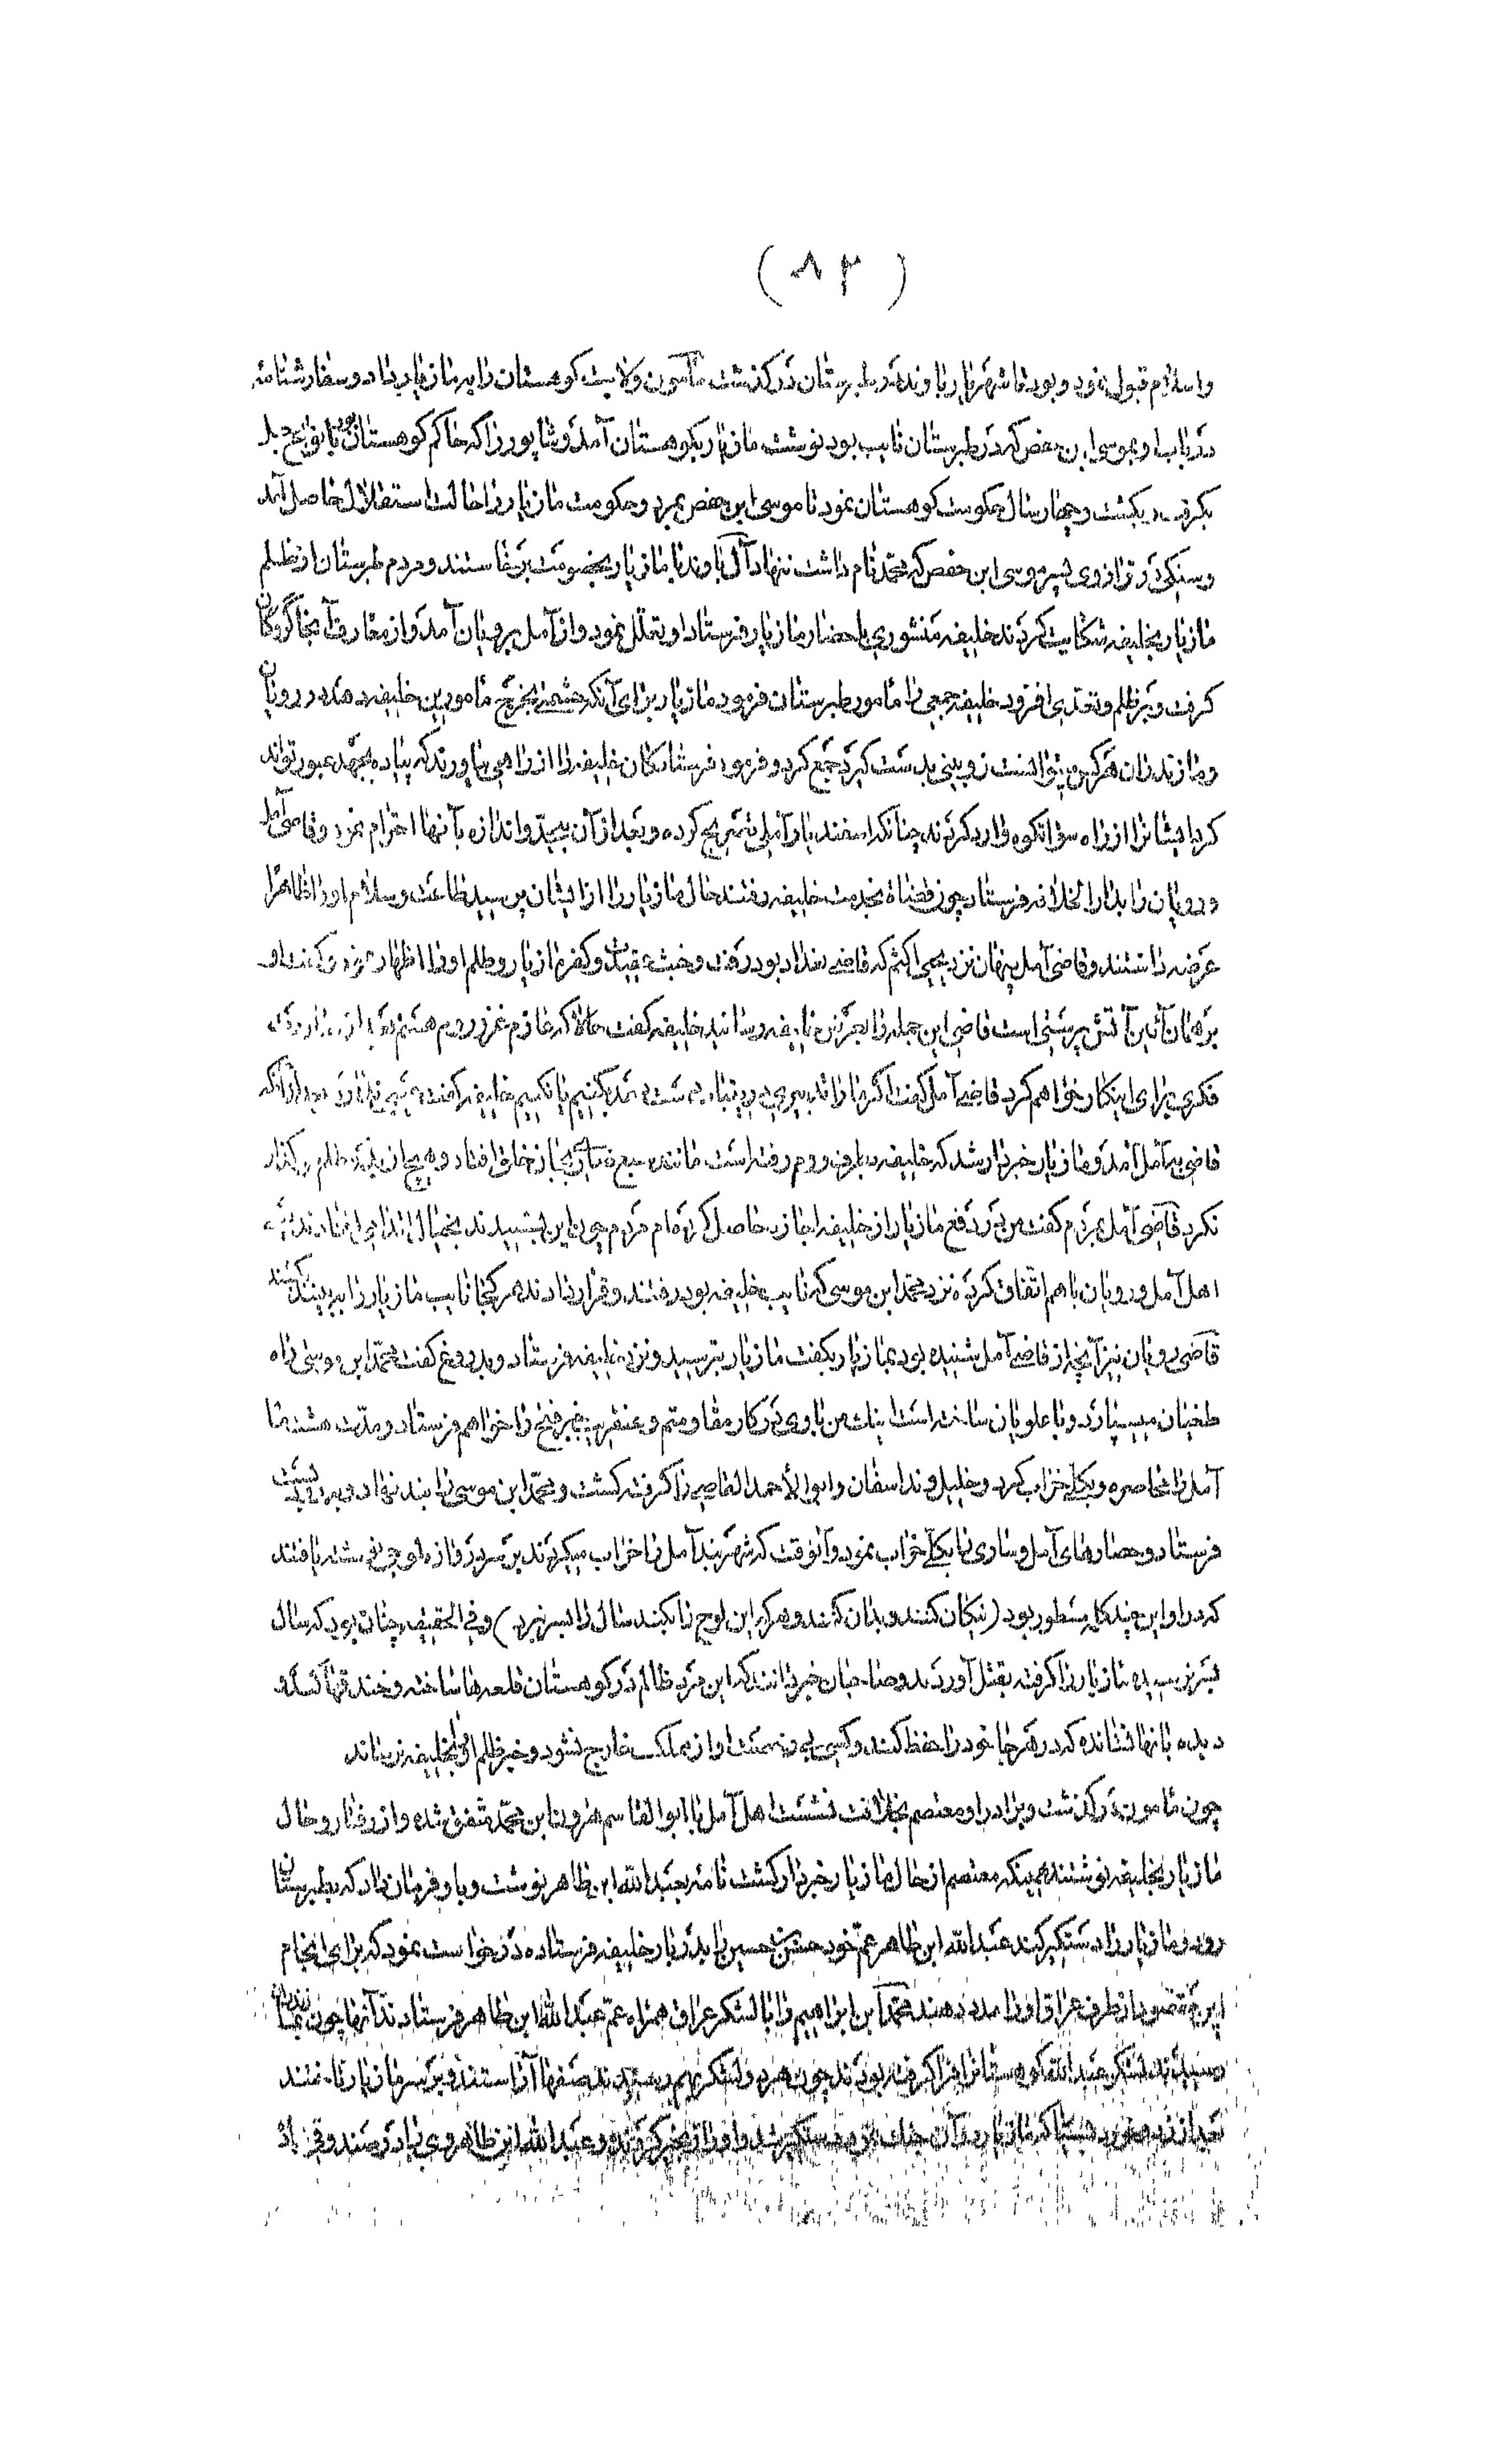 (۸۳)
واسلام قبول نمود و بود تا شهریار باوند در طبرستان درگذشت مأمون ولایت کوهستان را بمازیار داد و سفارشنامهٔ
در باب او بموسی ابن حفص که در طبرستان نایب بود نوشت مازیار بکوهستان آمد و شاپور را که حاکم کوهستان بود
بگرفت و بکشت و چهار سال حکومت کوهستان نمود تا موسی ابن حفص بمرد و حکومت مازیار را حالت استقلال حاصل آمد
و سنگی در ترازوی پسر موسی ابن حفص که محمد نام داشت ننهاد آل باوند با مازیار بخصومت برخاستند و مردم طبرستان از ظلم
مازیار بخلیفه شکایت کردند خلیفه منشوری باحضار مازیار فرستاد او تعلل نمود و از آمل برویان آمد و از معارف آنجا گروگان
گرفت و بر ظلم و تعدی افزود خلیفه جمعی را مأمور طبرستان فرمود مازیار برای آنکه بخرج مأمورین خلیفه دهد در رویان
و مازندران هر که میتوانست زوبینی بدست گیرد جمع کرد و فرمود فرستادگان خلیفه را از راهی بیاورند که پیاده بجهد عبور تواند
کرد ایشانرا از راه سواتکوه وارد کردند چنانکه اسفندیار آملی تشریح کرده و بعد از آن بیحد و اندازه بآنها احترام نمود و قاضی آمل
و رویان را بدارالخلافه فرستاد چون قضاة بخدمت خلیفه رفتند حال مازیار را از ایشان پرسید طاعت و سلام او را ظاهرا
عرضه داشتند و قاضی آمل پنهان نزد یحیی اکثم که قاضی بغداد بود رفت و خبث عقیدت و کفر مازیار و ظلم او را اظهار نمود و گفت او
بر همان آئین آتش پرستی است قاضی این جمله را بعرض خلیفه رسانید خلیفه گفت حالا که عازم غزو روم هستم بعد از
فکری برای اینکار خواهم کرد قاضی آمل گفت اگر ما را تدبیری در دست بکنیم یا نکنیم خلیفه گفت بعد از آنکه
قاضی به آمل آمد و مازیار خبردار شد که خلیفه بطرف روم رفته است مانند سبع بجان خلق افتاد و هیچ از ظلم فروگذار
نکرد قاضی آمل بمردم گفت من در دفع مازیار از خلیفه اجازه حاصل کرده‌ام مردم چون این بشنیدند بخیال افتادند
اهل آمل و رویان باهم اتفاق کرده نزد محمد ابن موسی که نایب خلیفه بود رفتند و قرار دادند هر کجا نایب مازیار را ببینند بکشند
قاضی رویان نیز آنچه از قاضی آمل شنیده بود بمازیار بگفت مازیار بترسید و نزد خلیفه فرستاد و بدروغ گفت محمد ابن موسی راه
طغیان میسپارد و با علویان ساخته است اینک من با وی در کار مقاومتم و عنقریب خبر فتح را خواهم فرستاد و مدت هشت ماه
آمل را محاصره و بکلی خراب کرد و خلیل ونداسفان و ابو احمد القاضی را گرفته کشت و محمد ابن موسی را بند نهاد و
فرستاد و حصارهای آمل و ساری را بکلی خراب نمود و آنوقت که شهربند آمل را خراب میکردند بر سر دروازه لوحی نوشته یافتند
که در او این چند کلمه مسطور بود (نیکان کنند و بدان کنند و هر که این لوح را بکند سال را بسر نبرد) و فی الحقیقه چنان بود که سال
بسر نرسیده مازیار را گرفته بقتل آوردند و صاحبان خبر دانند که این مرد ظالم در کوهستان قلعه‌ها ساخته و خندقها کنده و
دیده بانها نشانده که در هر جا خود را حفظ کنند و کسی بی رخصت او از مملکت خارج نشود و خبر ظلم او بخلیفه نرساند
چون مأمون درگذشت و برادر او معتصم بخلافت نشست اهل آمل با ابوالقاسم هرون ابن محمد متفق شده و از رفتار و حال
مازیار بخلیفه نوشتند همینکه معتصم از حال مازیار خبردار گشت نامه بعبدالله ابن طاهر نوشت و باو فرمان داد که بطبرستان
رود و مازیار را دستگیر کند عبدالله ابن طاهر عم خود حسن حسین را بدربار خلیفه فرستاده درخواست نمود که برای انجام
این مقصود از طرف عراق او را مدد دهند محمد ابن ابراهیم را با لشکر عراق همراه عم عبدالله ابن طاهر فرستادند آنها چون
رسیدند لشکر عبدالله کوهستانرا فرا گرفته بودند چون هر دو لشکر بهم رسیدند صفها آراستند و بر سر مازیار تاختند
بعد از زد و خورد مازیار در آن جنگ دستگیر شد و او را زنجیر کردند و عبدالله ابن طاهر وی را در صندوقی